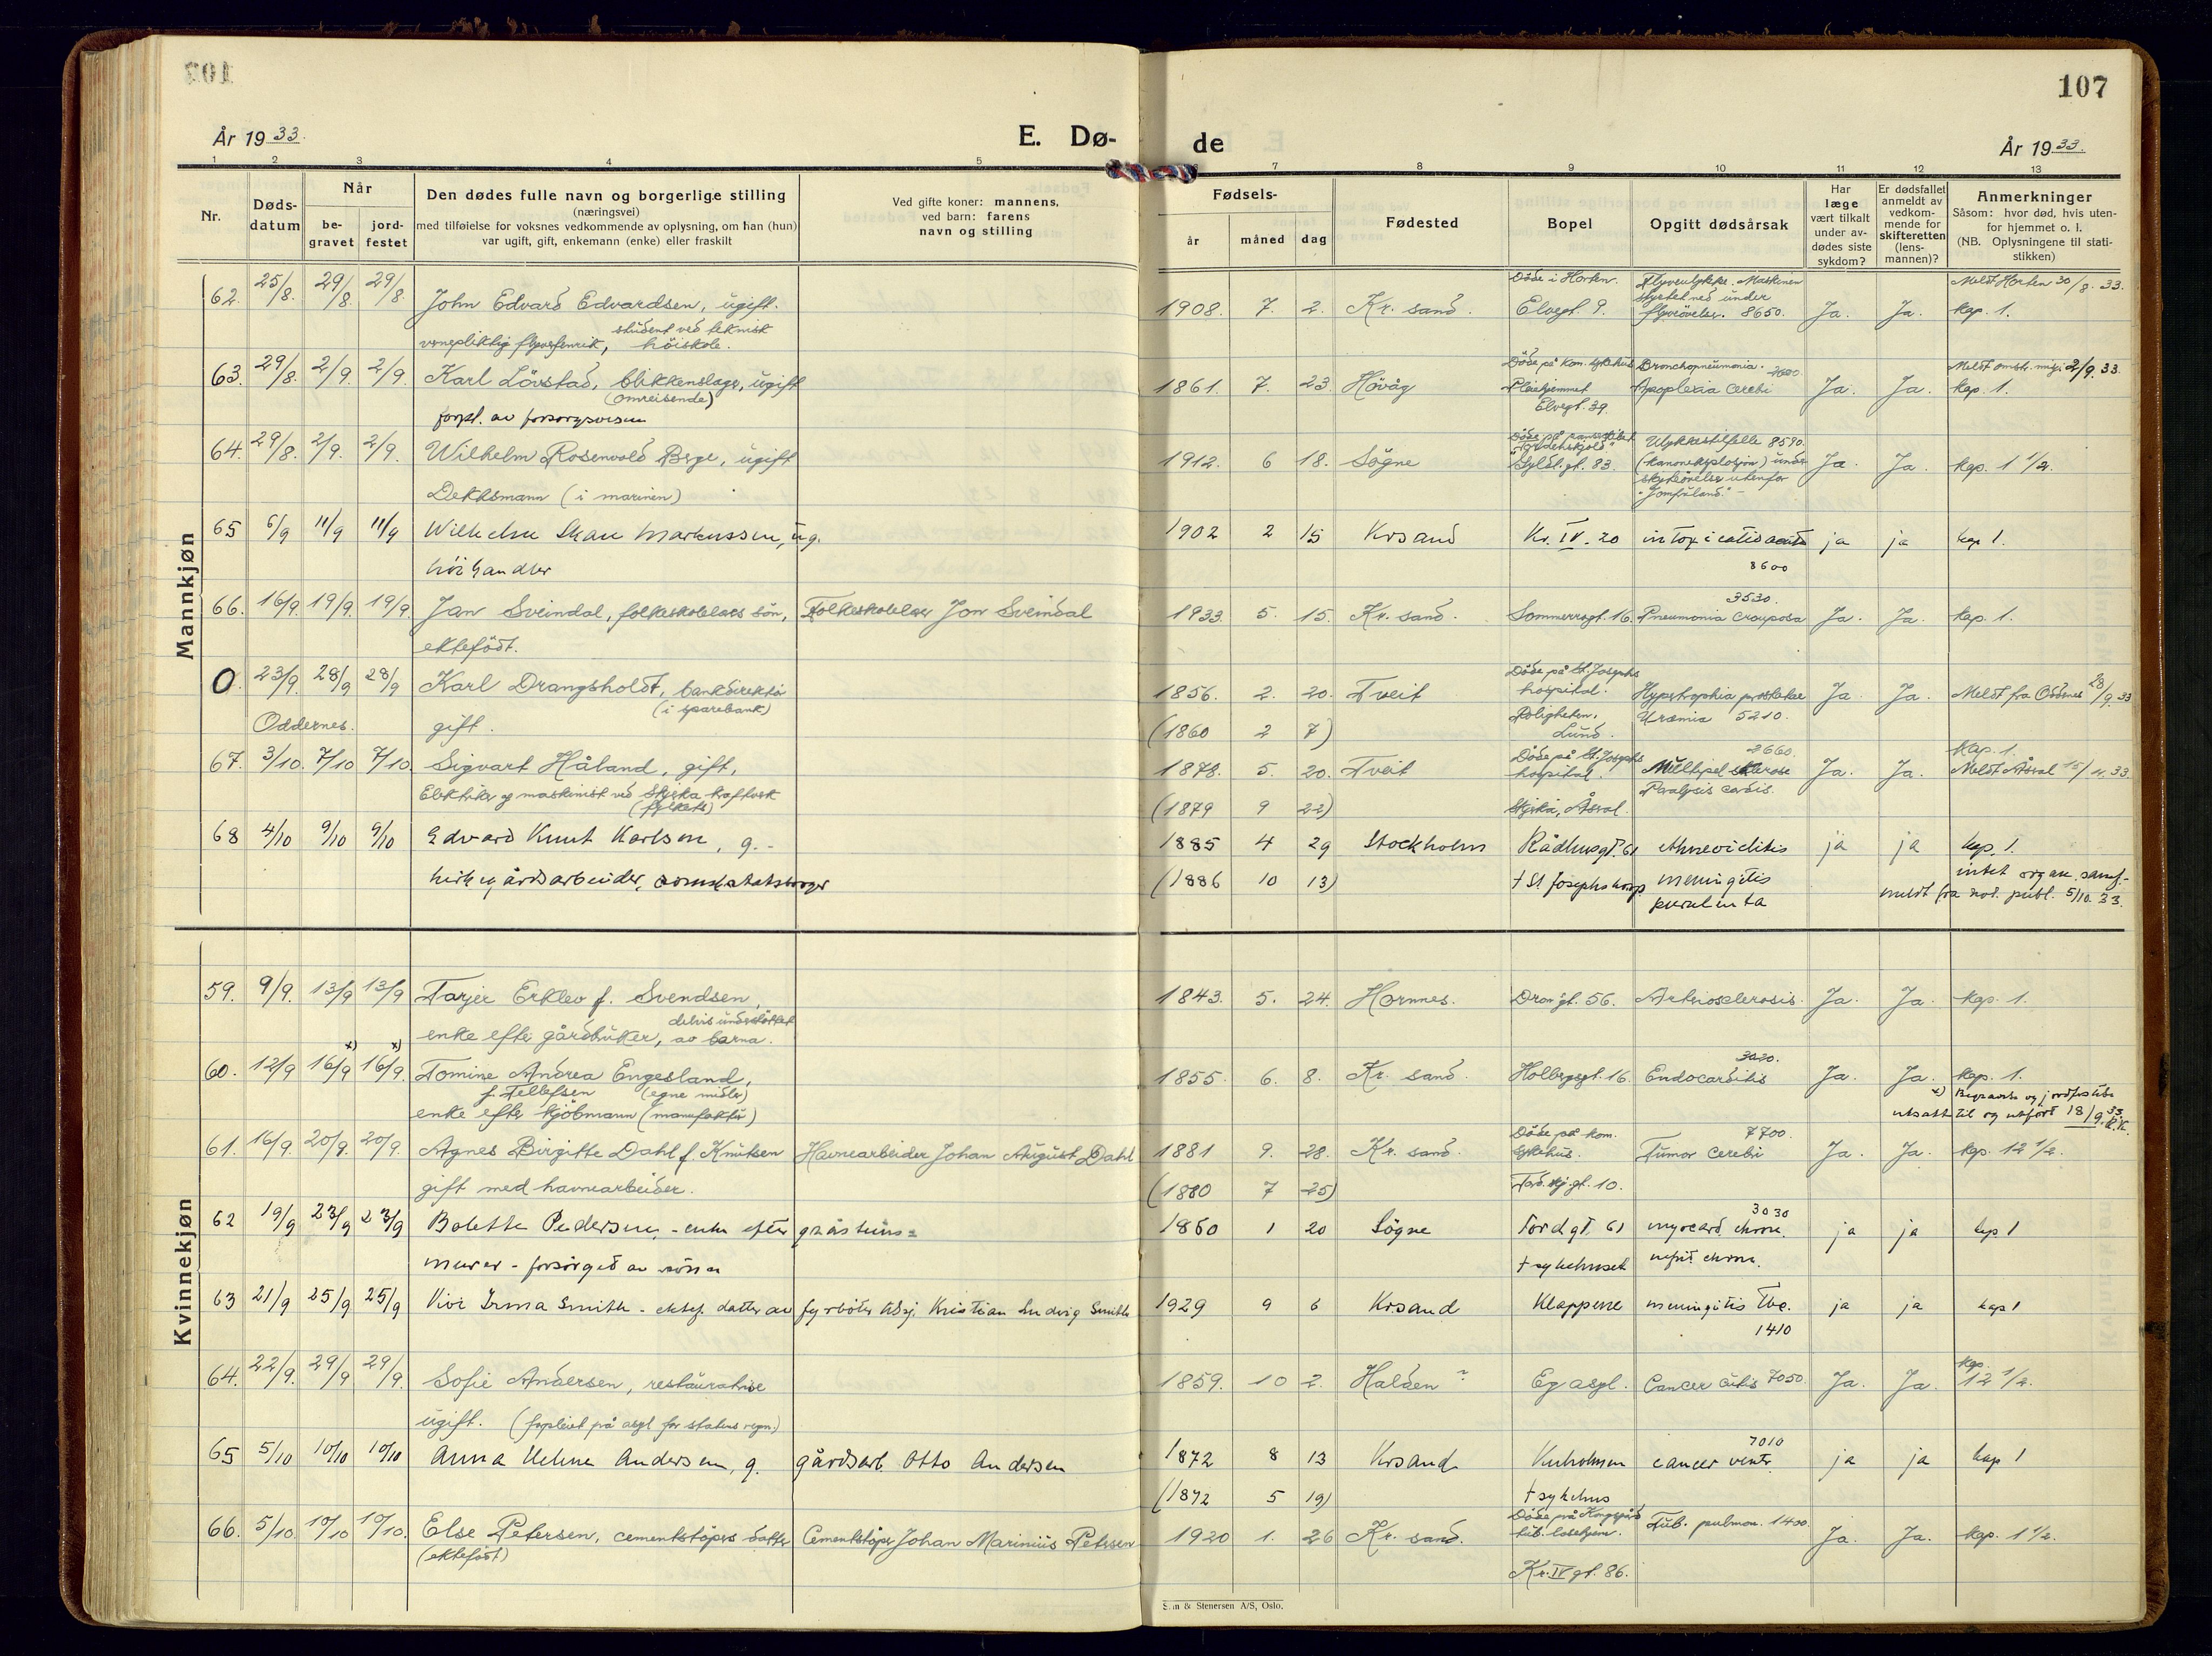 107
År 1933.
E. Dø-
de
År 1933.
1 2 3 4 5 6 7 8 9 10 11 12 13
Nr.
Døds-
datum
Når
be-
gravet
jord-
festet
Den dødes fulle navn og borgerlige stilling
(næringsvei)
med tilføielse for voksnes vedkommende av oplysning, om han (hun)
var ugift, gift, enkemann (enke) eller fraskilt
Ved gifte koner: mannens,
ved barn: farens
navn og stilling
Fødsels-
år måned dag
Fødested
Bopel
Opgitt dødsårsak
Har
læge
vært tilkalt
under av-
dødes siste
sykdom?
Er dødsfallet
anmeldt av
vedkom-
mende for
skifteretten
(lens-
mannen)?
Anmerkninger
Såsom: hvor død, hvis uten-
for hjemmet o. l.
(NB. Oplysningene til stati-
stikken)
Mannkjøn
Døde i Horten. Flyveulykke. Maskinen Meldt Horten 30/8. 33.
62. 25/8. 29/8. 29/8. John Edvard Edvardsen, ugift. 1908. 7. 2. Kr. sand. Elvegt. 9. styrtet ned under flyveøvelser. 8650. Ja. Ja. kap. 1.
student ved teknisk
vernepliktig flyverfenrik, høiskole.
Døde på kom. sykehus Bronchopneumonia. Meldt 2/9. 33.
63. 29/8. 2/9. 2/9. Karl Lövstad, blikkenslager, ugift 1861. 7. 23. Hövåg Pleiehjemmet Apoplexia cerebri Ja. Ja. kap. 1.
(omreisende) Elvegt. 39.
forpl. av forsorgsvesen
Döde på "Tordenskjold" Ulykkestilfelle 8590.
64. 29/8. 2/9. 2/9. Wilhelm Rosenvold Berge, ugift 1912. 6 18. Sögne Gyld. gt. 83. (kanoneksplosjon) under Ja. Ja. kap. 1 1/2.
Dekksmann (i marinen) skyteövelser utenfor
"Jomfruland."
65 6/9 11/9 11/9 Wilhelm Skau Markussen, ug. 1902 2 15 Krsand Kr. IV. 20 intoxicatio acuta ja ja kap 1.
höihandler 8600
3530.
66. 16/9. 19/9. 19/9. Jan Sveindal, folkeskolelærers sön, Folkeskolelærer Jon Sveindal 1933. 5. 15. Kr. sand. Sommerrogt. 16. Pneumonia crouposa Ja. Ja. kap. 1.
ektefödt.
Döde på St. Josephs
0. 23/9. 28/9 28/9 Karl Drangsholdt, bankdirektör 1856. 2. 20. Tveit hospital. Hypertrophia prostatae Ja. Ja. Meldt fra Oddernes 28/9. 33
(i sparebank) Roligheten, Uræmia 5210.
Oddernes. gift. (1860 2 7) Lund.
2660. kap. 1.
67. 3/10. 7/10 7/10. Sigvart Håland, gift, 1878. 5. 20. Tveit Döde på St. Josephs hospital. Multipel sklerose Ja. Ja. Meldt Åseral
Elektriker og maskinist ved Skjerka kraftverk Paralysis cordis.
(fylkets) (1879 9 22) Skjerka, Åseral.
68 4/10 9/10 9/10 Edvard Knut Karlson, g. 1885 4 29 Stockholm Rådhusgt. 61 ja ja kap. 1.
kirkegårdsarbeider, statsborger (1886 10 13) † St. Josephs hosp. meningitis intet
purulenta meldt fra not. publ. 5/10. 33.
Kvinnekjøn
59. 9/9. 13/9 13/9 Tarjer Erklev f. Svendsen, 1843. 5. 24. Hornnes. Dron. gt. 56. Arteriosclerosis. Ja. Ja. kap. 1.
delvis understöttet
enke efter gårdbruker, av barna.
3020.
60. 12/9 x) 16/9 x) 16/9. Tomine Andrea Engesland, 1855. 6. 8. Kr. sand. Holbergsgt. 16. Endocarditis Ja. Ja. kap. 1.
f. Tellefsen (egne midler) x) Begravelse og jordfestelse
enke efter kjöbmann (manufaktur) utsatt til og utfört 18/9. 33.
Döde på kom. 7700.
61. 16/9. 20/9. 20/9. Agnes Birgitte Dahl f. Knutsen Havnearbeider Johan August Dahl 1881 9. 28. Kr. sand. sykehus. Tumor cerebri Ja. Ja. kap. 12 1/2.
gift med havnearbeider. (1880 7 25) Tord.skj.gt. 10.
3030
62 19/9 23/9 23/9 Bolette Pedersen, - enke efter gråsteins= 1860 1 20 Sögne Tord gt 61 myocard. chron. ja ja kap 1
murer - forsörget av sönner † sykehuset nefrit chron.
63 21/9 25/9 25/9 Vivi Irma Smith - ektef. datter av fyrböter Asbj. Kristian Ludvig Smith 1929 9 6 Krsand Klappene meningitis Tbc. ja ja kap 1
1410
64. 22/9. 29/9 29/9. Sofie Andersen, restauratrise 1859. 10 2. Halden ? Eg asyl. Cancer cutis 7050. Ja. Ja. kap. 12 1/2.
ugift. (forpleiet på asyl for statens regn.)
7010
65 5/10 10/10 10/10 Anna Helene Andersen, g. gårdsarb. Otto Andersen 1872 8 13 Krsand Kuholmen cancer ventr. ja ja kap 1
(1872 5 19) † sykehus
66. 5/10. 10/10 10/10. Else Petersen, cementstöpers datter Cementstöper Johan Marinius Petersen 1920 1. 26 Kr. sand. Döde på Kongsgård tub. Tub. pulmon. 1400. Ja. Ja. kap. 1 1/2.
(ektefödt)
Kr. IV gt. 86.
Sem & Stenersen A/S, Oslo.